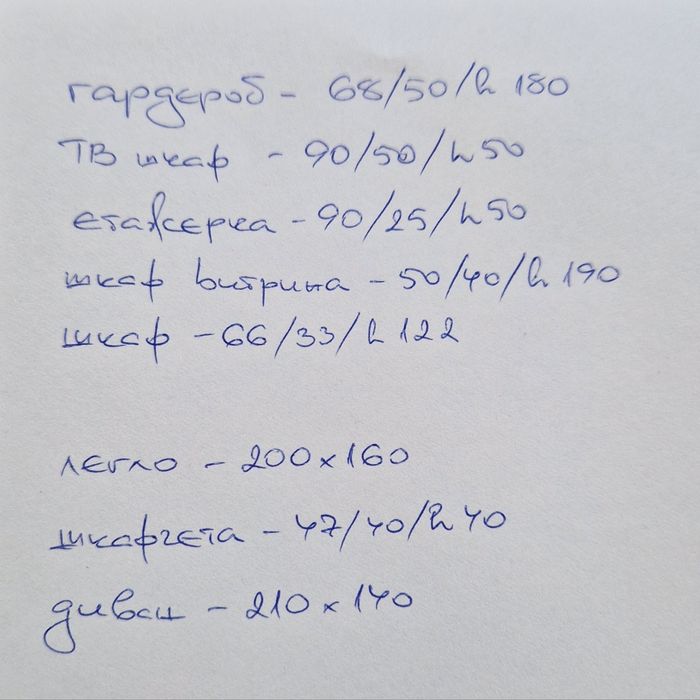 гардероб - 68/50/h 180
ТВ шкаф - 90/50/h 50
етажерка - 90/25/h 50
шкаф витрина - 50/40/h 190
шкаф - 66/33/h 122
легло - 200x160
шкафчета - 47/40/h 40
диван - 210x140